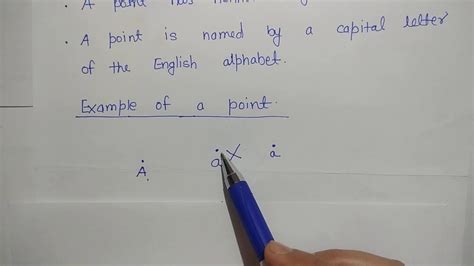 . A point has
. A point is named by a capital letter
of the English alphabet.
Example of a point.
A. a X a